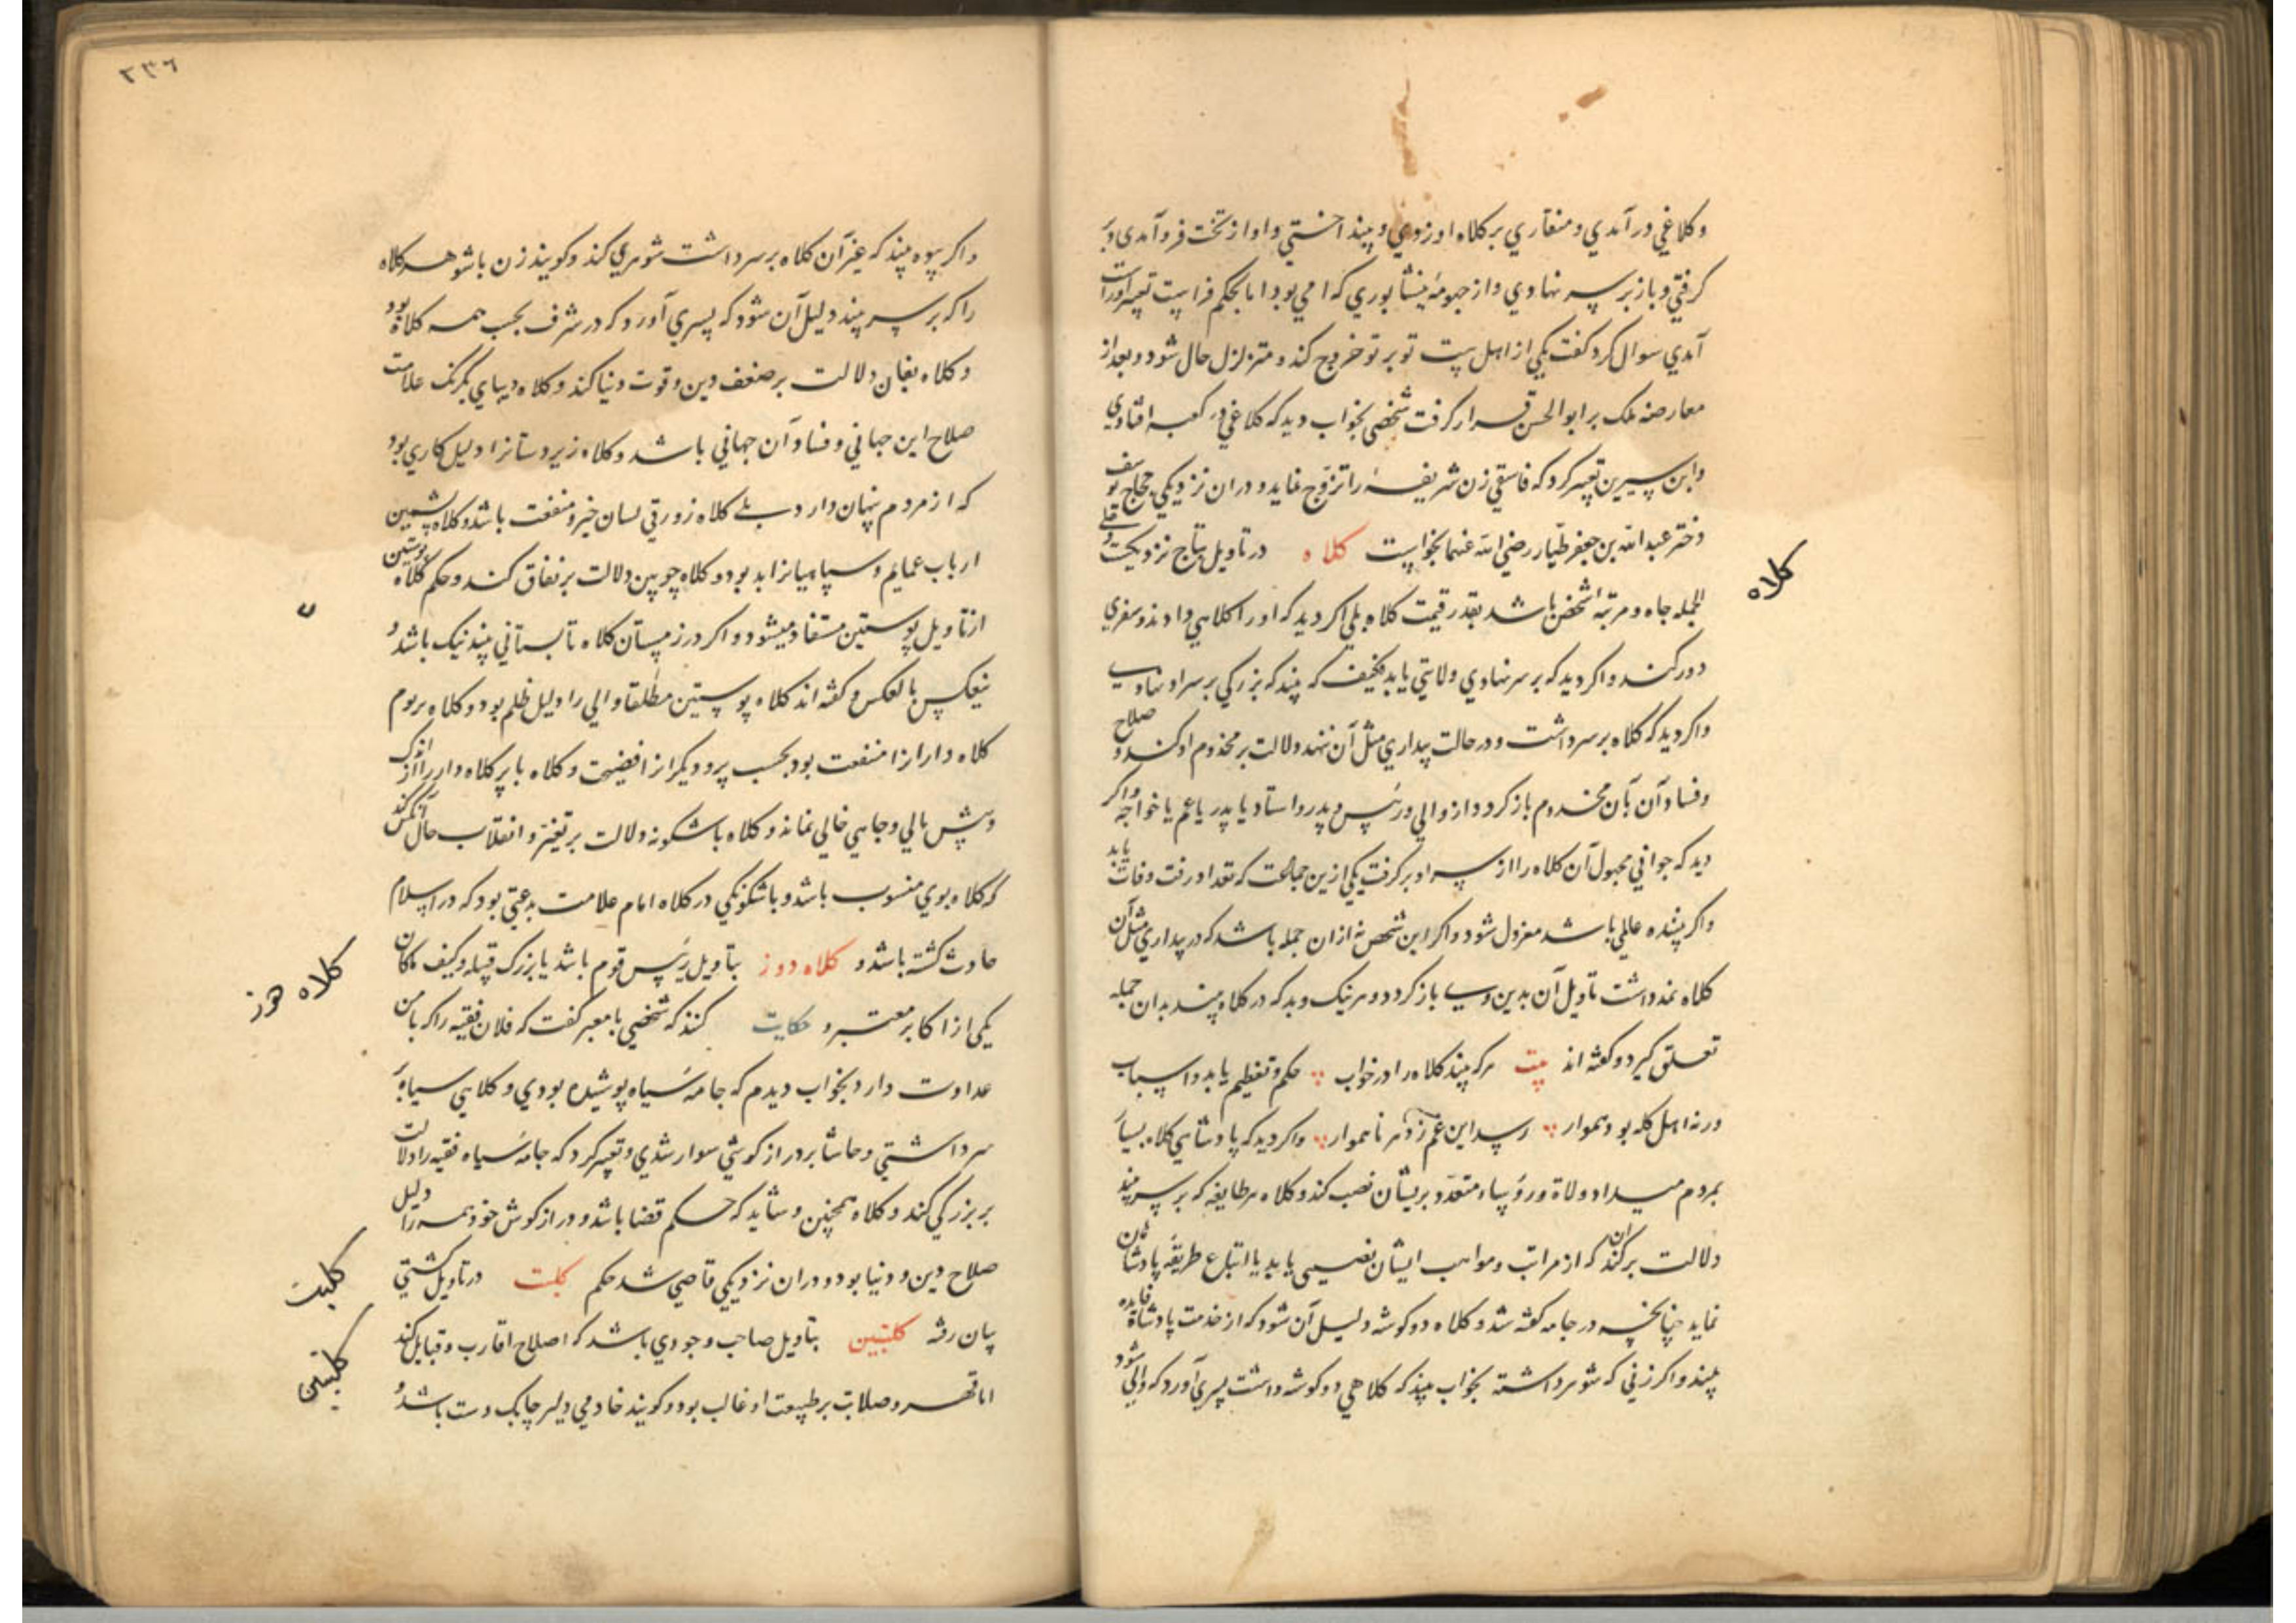 وکلاغی درآمدی و منقاری برکلاه او زدی و بینداختی و او از تخت فرو آمدی و بر
گرفتی و باز برسر نهادی و از حیومهٔ نیشابوری که امی بود اما بحکم فراست تعبیر او راست
آمدی سوال کرد گفت یکی از اهل بیت تو بر تو خروج کند و متزلزل حال شود و بعد از
معارضه ملک بر ابوالحسن قرار گرفت شخصی بخواب دید که کلاغی در کعبه افتادی
و ابن سیرین تعبیر کرد که فاسقی زن شریفه را تزوج نماید و در آن نزدیکی حجاج یوسف
دختر عبدالله بن جعفر طیار رضی الله عنهما بخواست کلاه در تاویل بتاج نزدیکست و فی
الجمله جاه و مرتبه اشخص باشد بقدر قیمت کلاه بلی اگر دید که او را کلاهی دادند سفری
دور کند و اگر دید که بر سر نهادی ولایتی یابد فکیف که بیند که بزرگی بر سر او نهادسی
واکر دید که کلاه برسر داشت و در حالت بیداری مثل آن ننهد دلالت بر مخدوم او کند و صلاح
وفساد آن بآن مخدوم باز گردد از والی و رئیس و پدر و استاد یا پدر یا عم یا خواجه واکر
دید که جوانی مجهول آن کلاه را از سر او بر گرفت یکی ازین جماعت که تعداد رفت وفات یابد
واکر بیننده عالمی باشد معزول شود و اگر این شخص نه از آن جمله باشد که در بیداری مثل آن
کلاه نداشت تاویل آن بدین وسے باز گردد و هر نیک و بد که در کلاه بیند بدان جمله
تعلق گیرد و گفته اند بیت هر که بیند کلاه را در خواب حکم و تعظیم یابد و اسباب
ور نه اهل کله بود هموار رسد این غم ز دهر ناهموار واکر دید که پادشاهی کلاه بسیار
بمردم میداد ولاة و رؤساء متعدد بریشان نصب کند و کلاه هر طایفه که بر سر بیند
دلالت بر آن کند که از مراتب و مواهب ایشان نصیبی یابد یا اتباع طریقه پادشاهان
نماید چنانچه در جامه گفته شد و کلاه دو گوشه دلیل آن شود که از خدمت پادشاه فایده
بیند و اگر زنی که شوهر داشته بخواب بیند که کلاهی دو گوشه داشت پسری آورد که والی شود
کلاه
۲۳۶
واکر بیوه بیند که غیر آن کلاه برسر داشت شوهری کند و گویند زن با شوهر کلاه
را که برسر بیند دلیل آن شود که پسری آورد که در شرف بحسب همه کلاه بود
وکلاه بغان دلالت بر ضعف دین و قوت دنیا کند و کلاه دیبای یکرنگ علامت
صلاح این جهانی و فساد آن جهانی باشد و کلاه زیر دستانرا دلیل کاری بود
که از مردم پنهان دارد بلے کلاه زورقی لسان خیر و منفعت باشد و کلاه پشمین
ارباب عمایم و سپاهیانرا بد بود و کلاه چوبین دلالت بر نفاق کند و حکم کلاه پوستین
از تاویل پوستین مستفاد میشود و اگر در زمستان کلاه تابستانی بیند نیک باشد و
ینعکس بالعکس و گفته اند کلاه پوستین مطلقا والی را دلیل ظلم بود و کلاه بر بوم
کلاه دارانرا منفعت بود بحسب پر و دیگرانرا فضیحت و کلاه با پر کلاه دار را از اندک
و بیش مالی و جاهی خالی نماند و کلاه باشگونه دلالت بر تغیر و انقلاب حال آنکس کند
که کلاه بوی منسوب باشد و باشگونگی در کلاه امام علامت بدعتی بود که در اسلام
حادث گشته باشد و کلاه دوز بتاویل رئیس قوم باشد یا بزرگ قبیله و کیف ماکان
یکی از اکابر معتبر و حکایت کنند که شخصی با معبر گفت که فلان فقیه را که با من
عداوت دارد بخواب دیدم که جامهٔ سیاه پوشیده بودی و کلاهی سیاه بر
سر داشتی و حاشا بر دراز گوشی سوار شدی و تعبیر کرد که جامهٔ سیاه فقیه را دلالت
بر بزرگی کند و کلاه همچنین و شاید که حکم قضا باشد و دراز گوش خود همه را دلیل
صلاح دین و دنیا بود و در آن نزدیکی قاضی شد حکم کلیت در تاویل کشتی
بیان رفته کلبتین بتاویل صاحب وجودی باشد که اصلاح اقارب و قبایل کند
اما قهر و صلابت بر طبیعت او غالب بود و گویند خادمی دلیر چابک دست باشد و
کلاه دوز
کلیت
کلبتین